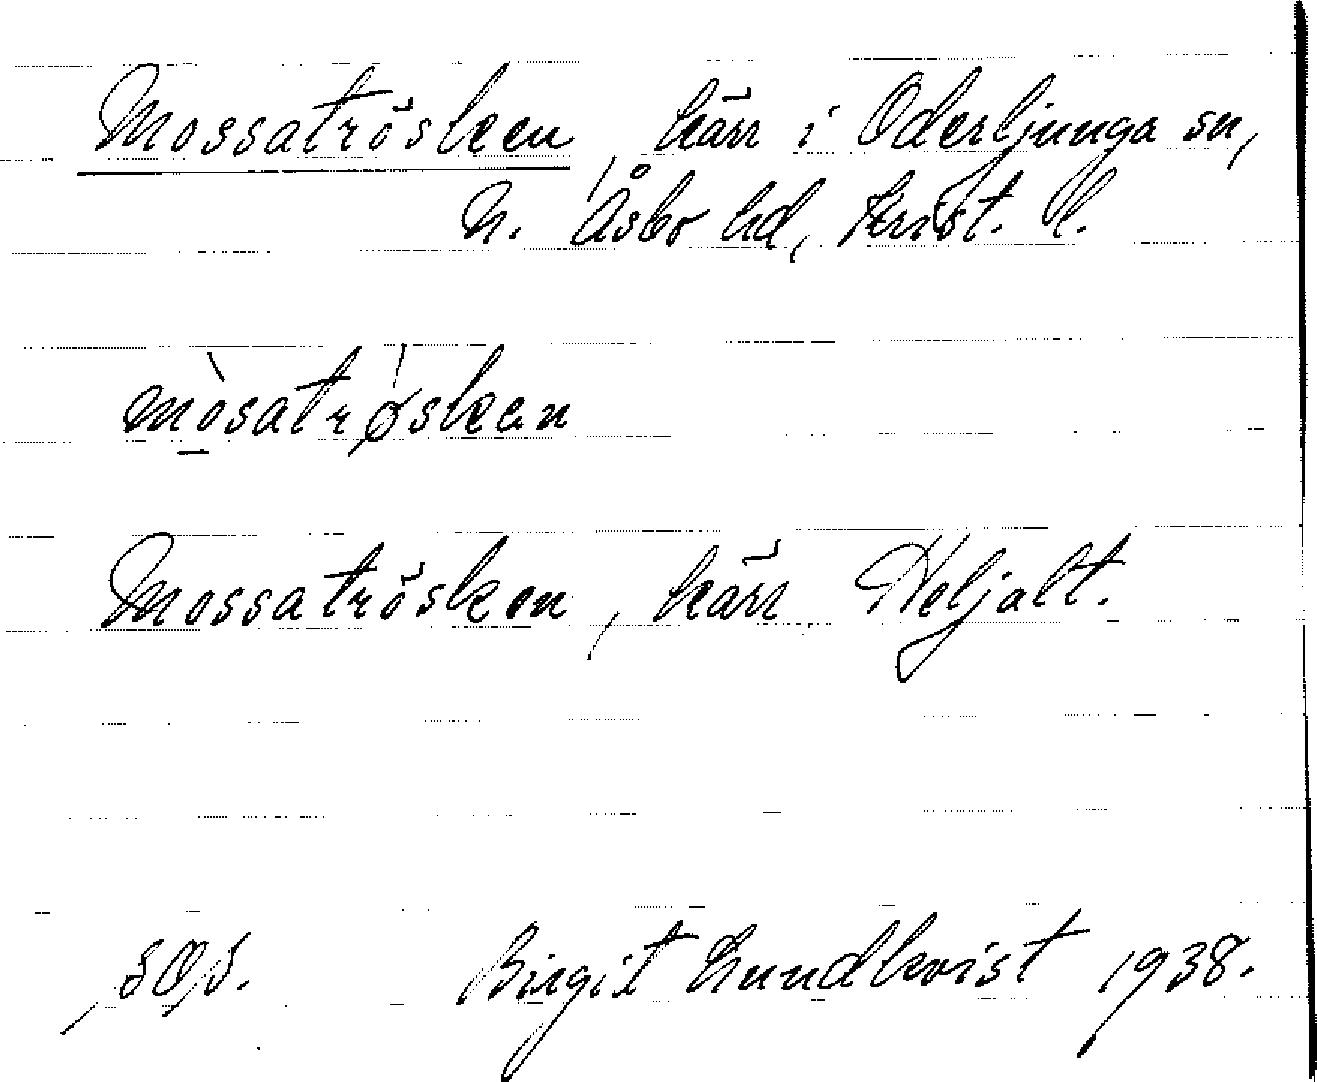 Mossatrösken, kärr i Oderljunga sn,
N. Åsbo hd, Krist. l.
mòsatrøskan
Mossatrösken, kärr Heljalt.
Birgit Lundkvist 1938.